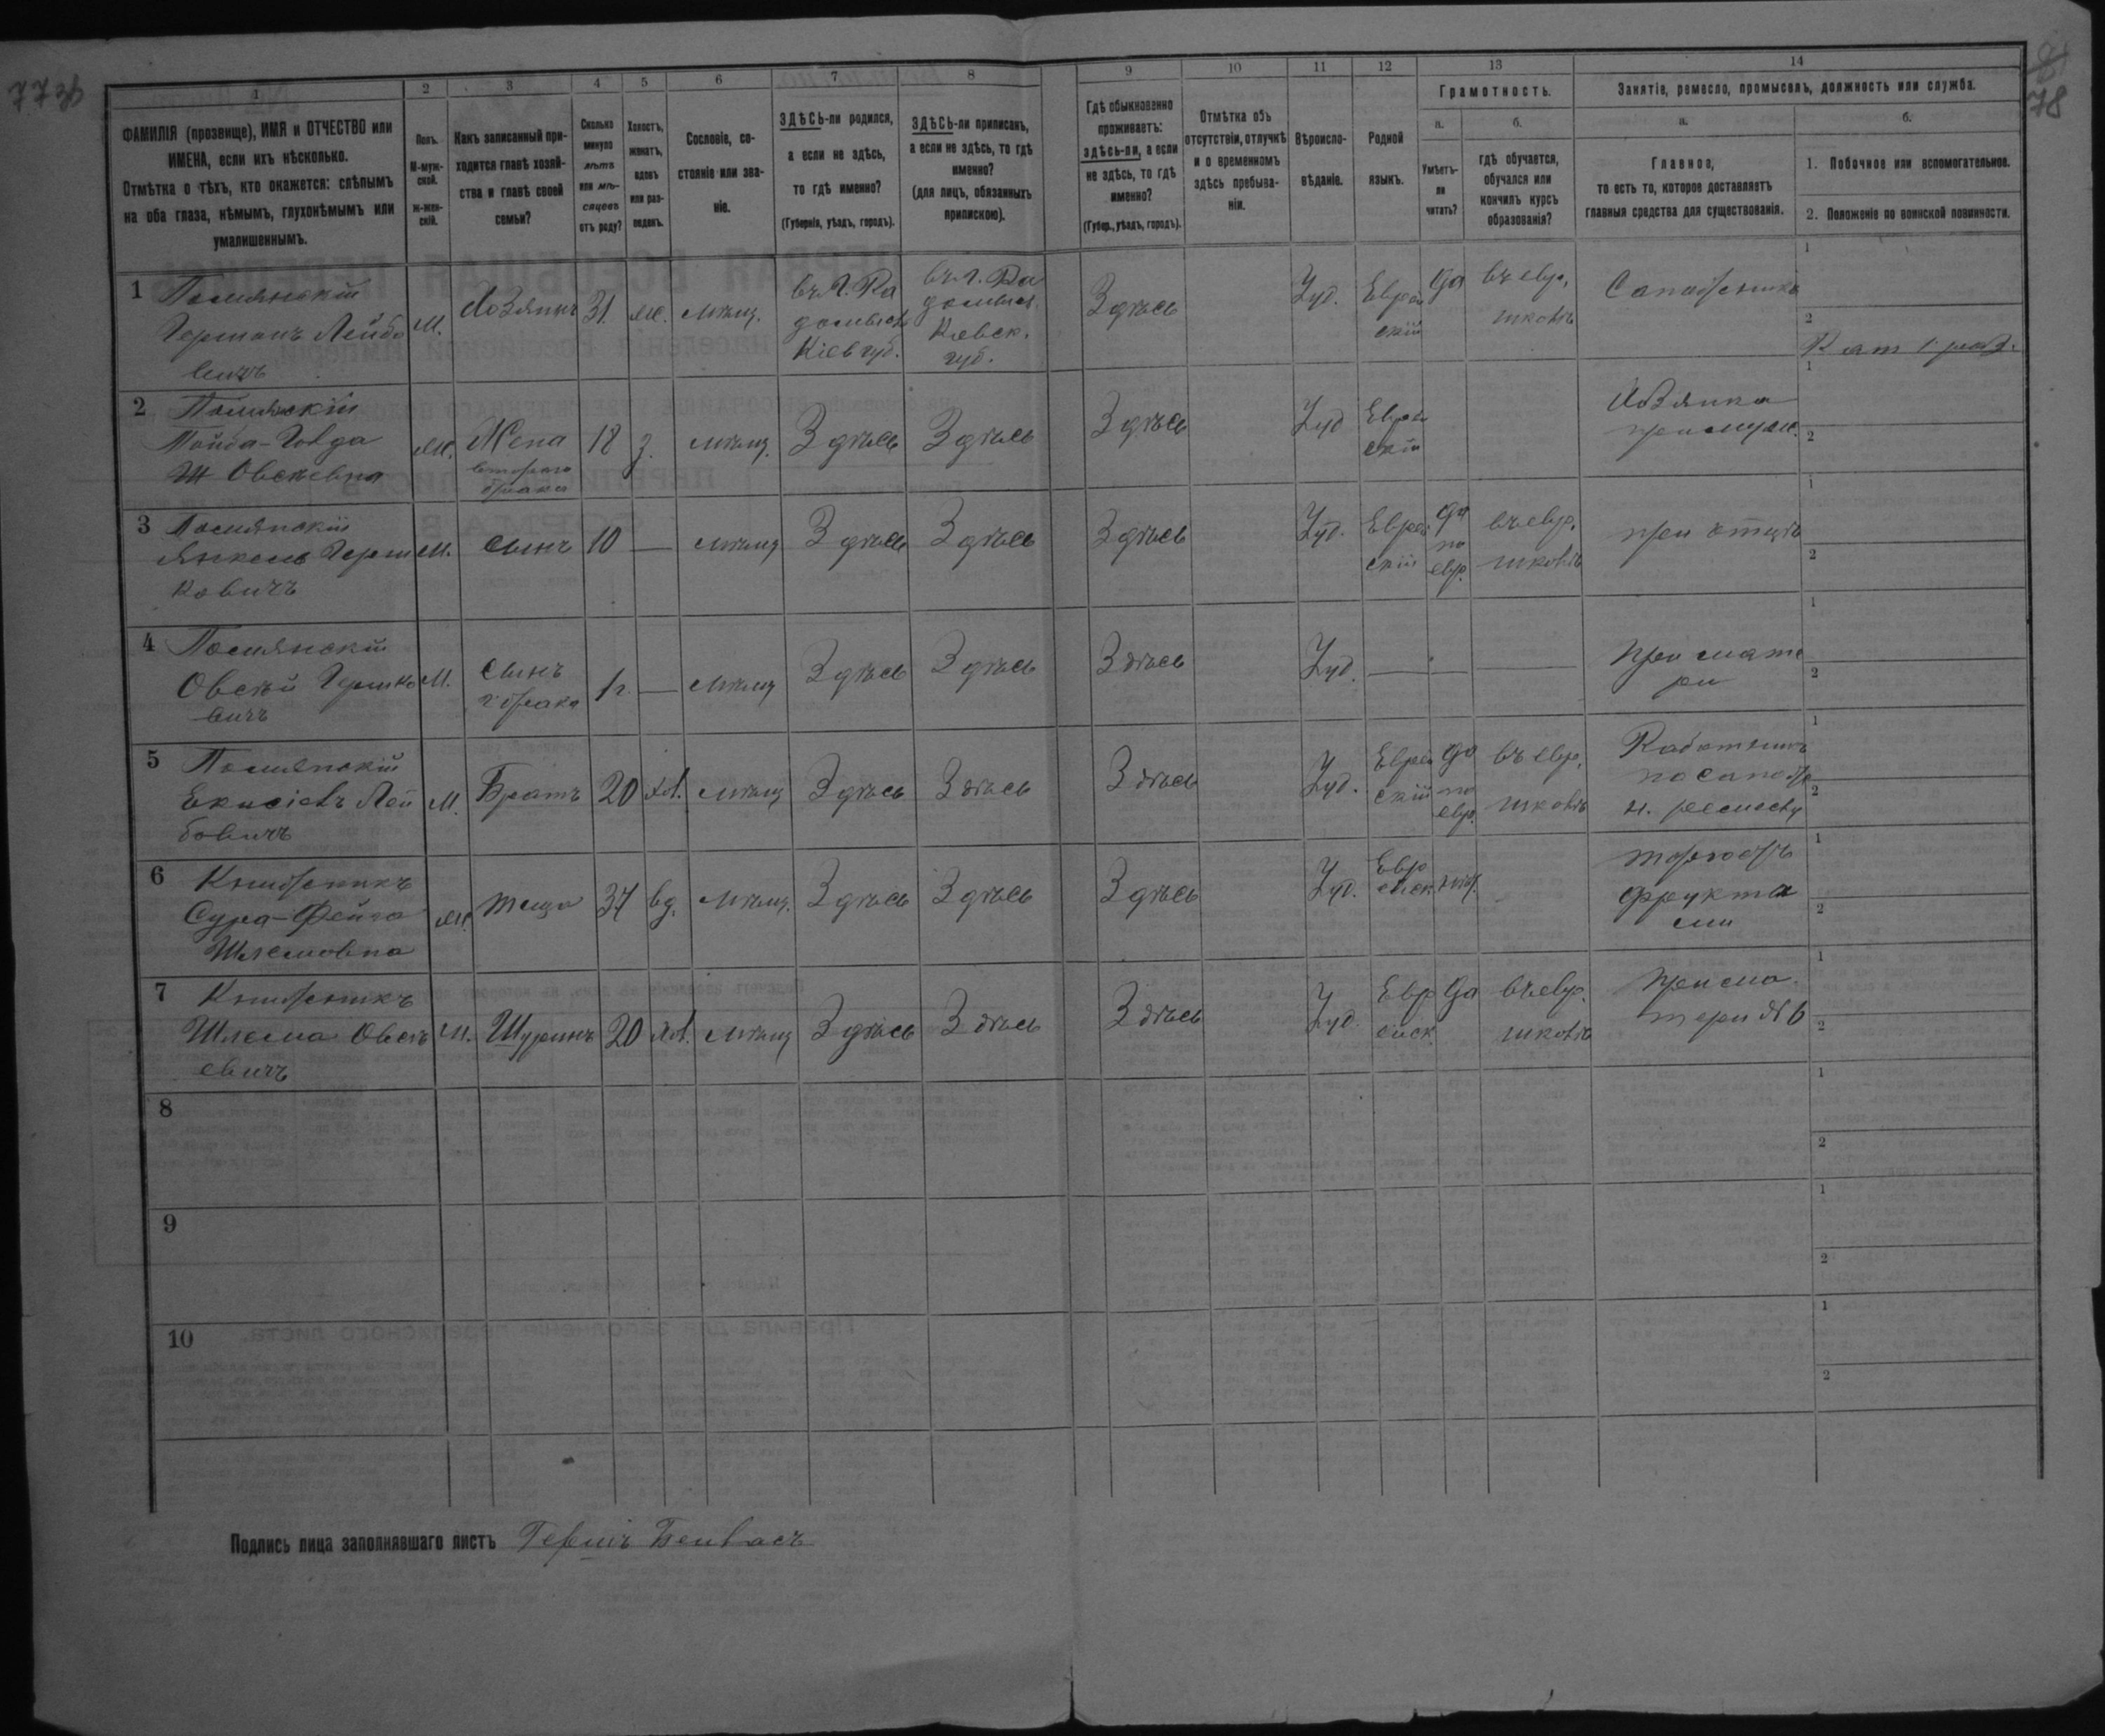 77 об
78
1
2
3
4
5
6
7
8
9
10
11
12
13
14
ФАМИЛІЯ (прозвище), ИМЯ и ОТЧЕСТВО или
ИМЕНА, если ихъ нѣсколько.
Отмѣтка о тѣхъ, кто окажется: слѣпымъ
на оба глаза, нѣмымъ, глухонѣмымъ или
умалишеннымъ.
Полъ.
М-муж-
ской.
ж-жен-
скій.
Какъ записанный при-
ходится главѣ хозяй-
ства и главѣ своей
семьи?
Сколько
минуло
лѣтъ
или мѣ-
сяцевъ
отъ роду?
Холостъ,
женатъ,
вдовъ
или раз-
веденъ.
Сословіе, со-
стояніе или зва-
ніе.
ЗДѢСЬ-ли родился,
а если не здѣсь,
то гдѣ именно?
(Губернія, уѣздъ, городъ).
ЗДѢСЬ-ли приписанъ,
а если не здѣсь, то гдѣ
именно?
(для лицъ, обязанныхъ
припискою).
Гдѣ обыкновенно
проживаетъ:
здѣсь-ли, а если
не здѣсь, то гдѣ
именно?
(Губер., уѣздъ, городъ).
Отмѣтка объ
отсутствіи, отлучкѣ
и о временномъ
здѣсь пребыва-
ніи.
Вѣроиспо-
вѣданіе.
Родной
языкъ.
Грамотность.
а.
Умѣетъ-
ли
читать?
б.
гдѣ обучается,
обучался или
кончилъ курсъ
образованія?
Занятіе, ремесло, промыселъ, должность или служба.
а.
Главное,
то есть то, которое доставляетъ
главныя средства для существованія.
б.
1. Побочное или вспомогательное.
2. Положеніе по воинской повинности.
1
Герман Лейбо
вичъ
М.
Хозяинъ
31.
ж.
мѣщ.
въ г. Ра
домысл
Кіев губ.
въ г. Ра
домысл.
Кіевск.
губ.
Здѣсь
Іуд.
Еврей
скій
да
въ евр.
школѣ
Сапожникъ
1
2
Рат 1 раз.
2
Ж
Овсѣевна
ж.
Жена
втораго
брака
18
з.
мѣщ.
Здѣсь
Здѣсь
Здѣсь
Іуд
Еврей
скій
Хозяйка
при муж.
1
2
3
Янкель Герш
ковичъ
М.
Сынъ
10
—
мѣщ
Здѣсь
Здѣсь
Здѣсь
Іуд.
Еврей
скій
да
по
евр.
въ евр.
школѣ
при отцѣ
1
2
4
Овсѣй Гершко
вичъ
М.
Сынъ
2 брака
1 г.
—
мѣщ
Здѣсь
Здѣсь
Здѣсь
Іуд.
—
—
—
При мате
ри
1
2
5
Лей
бовичъ
М.
Братъ
20
хол.
мѣщ
Здѣсь
Здѣсь
Здѣсь
Іуд.
Еврей
скій
да
по
евр.
въ евр.
школѣ
Работникъ
по сапож
н. ремеслу
1
2
6
Сура-Фейга
Шлемовна
ж.
теща
37
вд.
мѣщ.
Здѣсь
Здѣсь
Здѣсь
Іуд.
Евр
ейск.
Торговлъ
фрукта
ми
1
2
7
Шлема Овсѣ
евичъ
М.
Шуринъ
20
хол.
мѣщ
Здѣсь
Здѣсь
Здѣсь
Іуд.
Евр
ейск.
да
въ евр.
школѣ
При ма
тери № 6
1
2
8
1
2
9
1
2
10
1
2
Подпись лица заполнявшаго листъ